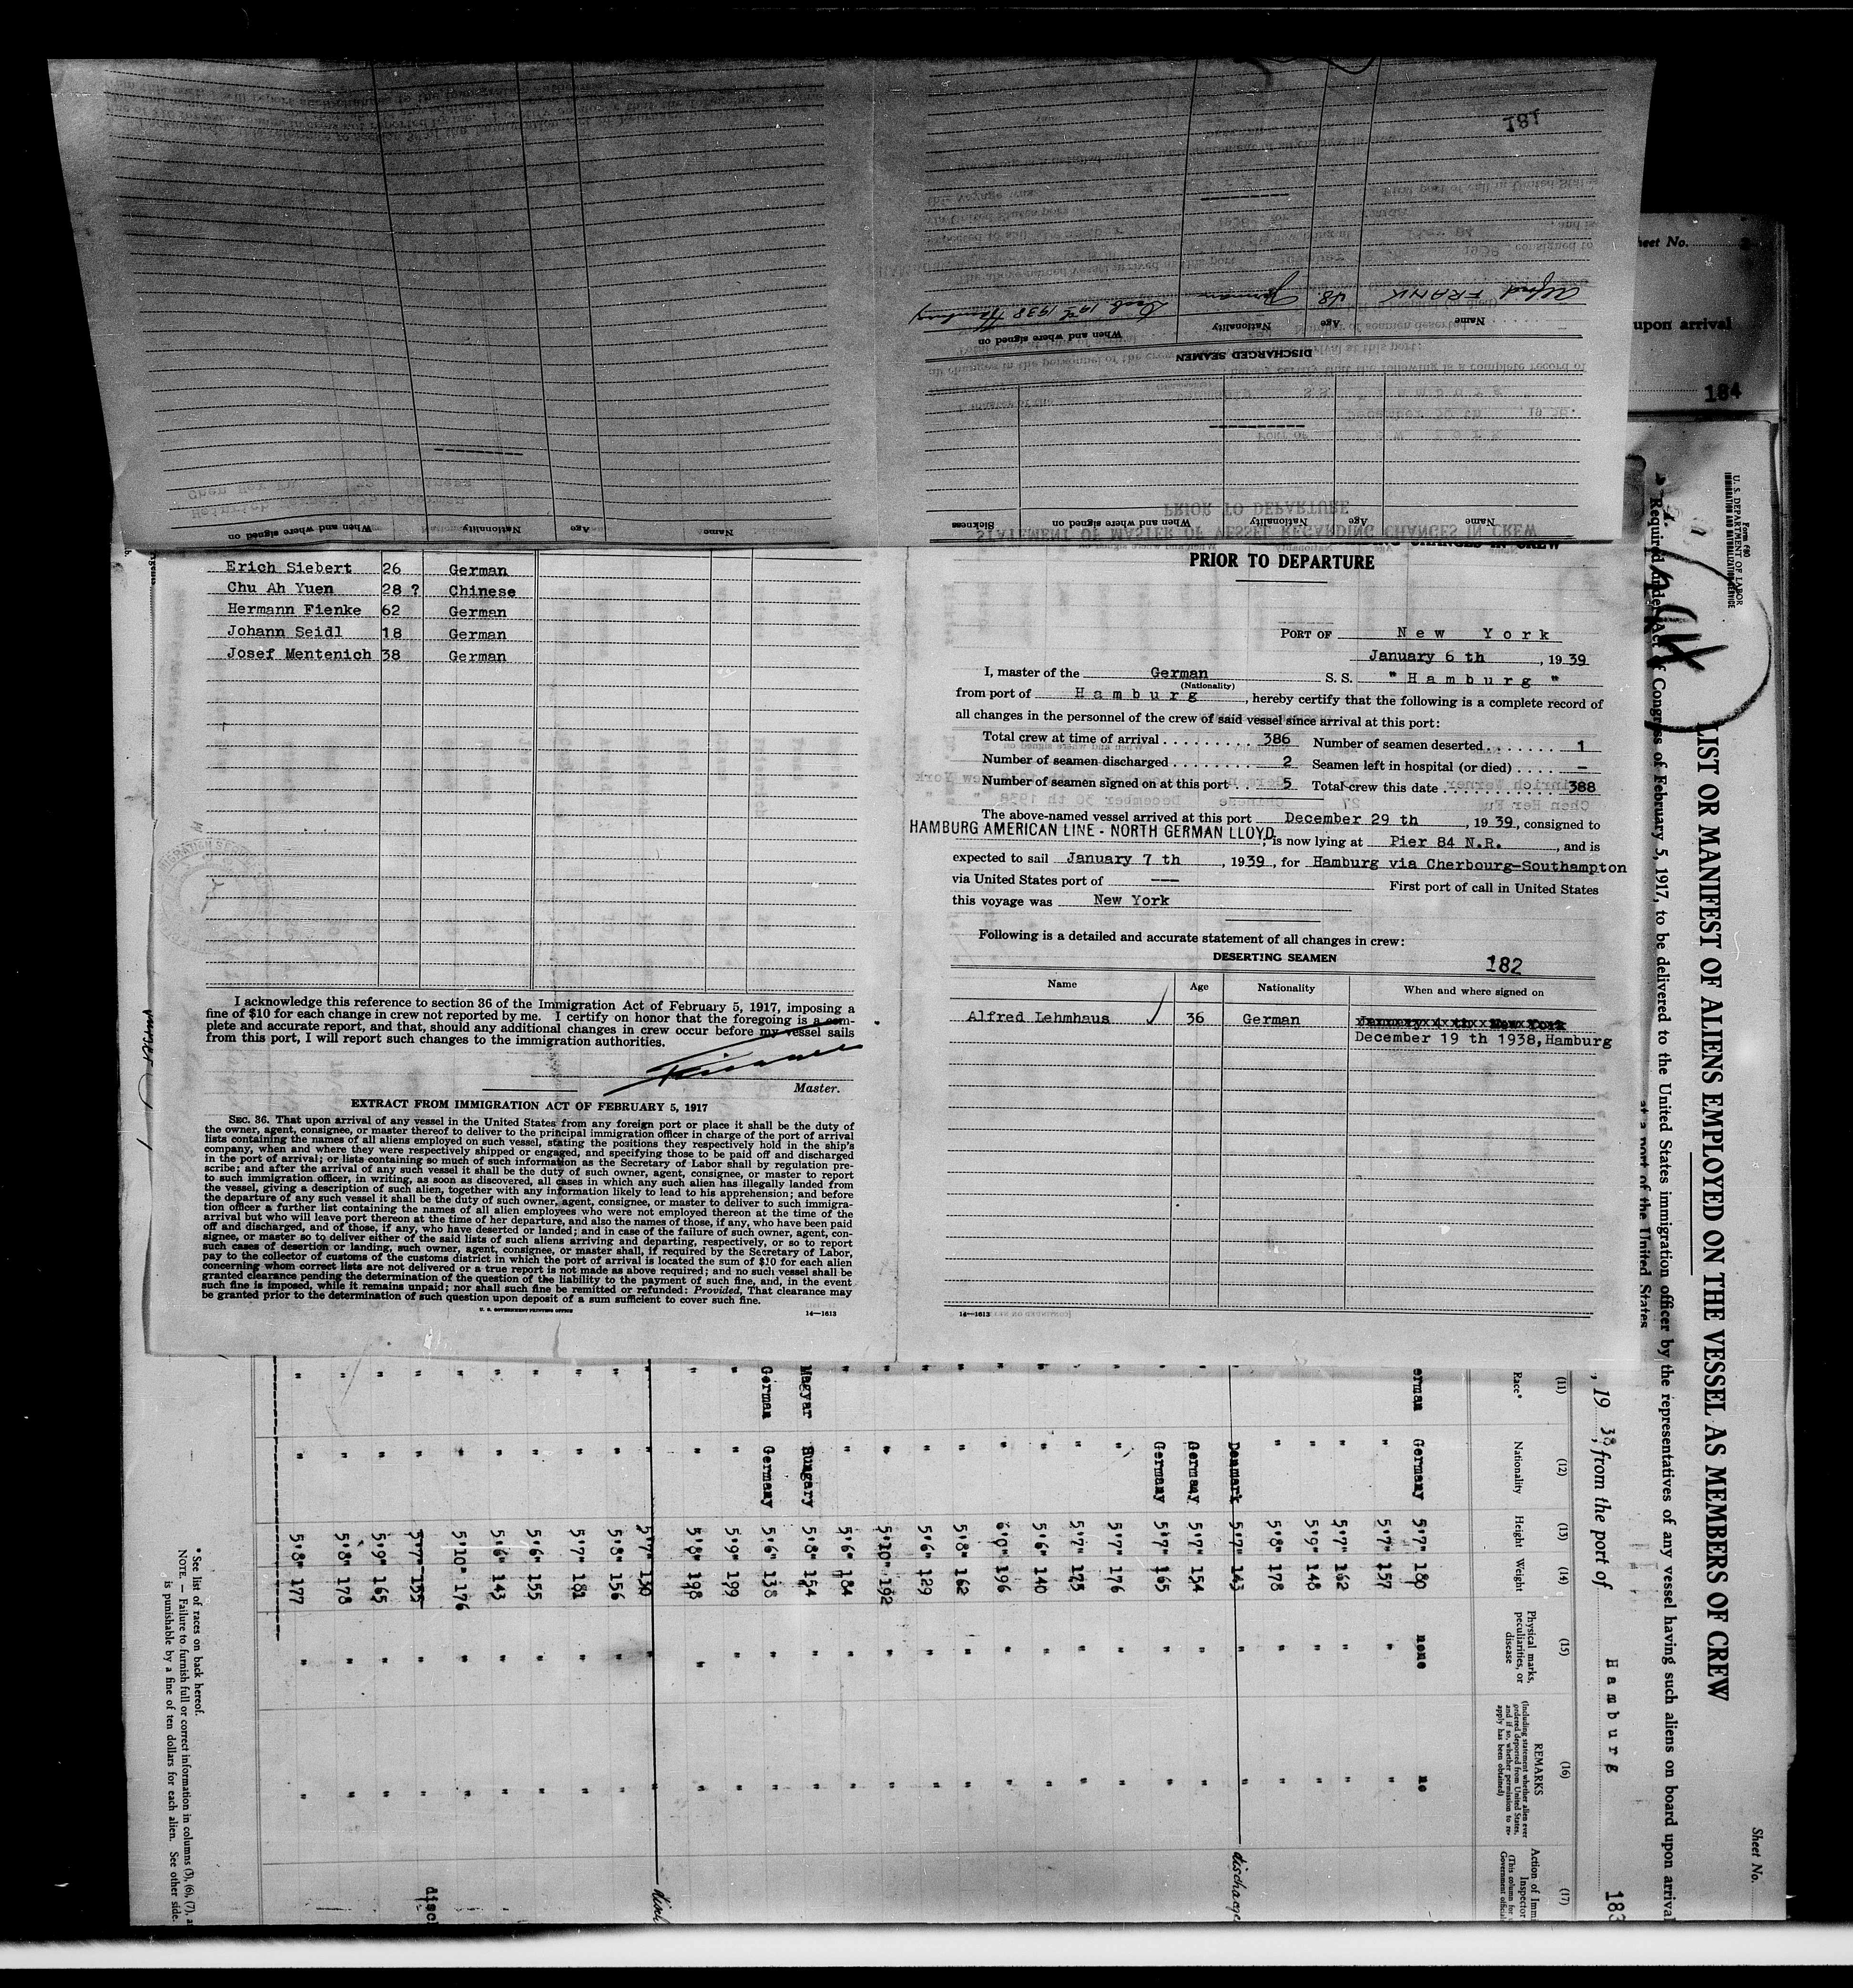 181
Alfred FRANK 48 German Dec. 19th 1938 Hamburg
Name Age Nationality When and where signed on
DISCHARGED SEAMEN
Name Age Nationality When and where signed on Sickness
Name Age Nationality When and where signed on
Erich Siebert 26 German
Chu Ah Yuen 28 ? Chinese
Hermann Fienke 62 German
Johann Seidl 18 German
Josef Mentenich 38 German
I acknowledge this reference to section 36 of the Immigration Act of February 5, 1917, imposing a
fine of $10 for each change in crew not reported by me. I certify on honor that the foregoing is a com-
plete and accurate report, and that, should any additional changes in crew occur before my vessel sails
from this port, I will report such changes to the immigration authorities.
Master.
EXTRACT FROM IMMIGRATION ACT OF FEBRUARY 5, 1917
SEC. 36. That upon arrival of any vessel in the United States from any foreign port or place it shall be the duty of
the owner, agent, consignee, or master thereof to deliver to the principal immigration officer in charge of the port of arrival
lists containing the names of all aliens employed on such vessel, stating the positions they respectively hold in the ship's
company, when and where they were respectively shipped or engaged, and specifying those to be paid off and discharged
in the port of arrival; or lists containing so much of such information as the Secretary of Labor shall by regulation pre-
scribe; and after the arrival of any such vessel it shall be the duty of such owner, agent, consignee, or master to report
to such immigration officer, in writing, as soon as discovered, all cases in which any such alien has illegally landed from
the vessel, giving a description of such alien, together with any information likely to lead to his apprehension; and before
the departure of any such vessel it shall be the duty of such owner, agent, consignee, or master to deliver to such immigra-
tion officer a further list containing the names of all alien employees who were not employed thereon at the time of the
arrival but who will leave port thereon at the time of her departure, and also the names of those, if any, who have been paid
off and discharged, and of those, if any, who have deserted or landed; and in case of the failure of such owner, agent, con-
signee, or master so to deliver either of the said lists of such aliens arriving and departing, respectively, or so to report
such cases of desertion or landing, such owner, agent, consignee, or master shall, if required by the Secretary of Labor,
pay to the collector of customs of the customs district in which the port of arrival is located the sum of $10 for each alien
concerning whom correct lists are not delivered or a true report is not made as above required; and no such vessel shall be
granted clearance pending the determination of the question of the liability to the payment of such fine, and, in the event
such fine is imposed, while it remains unpaid; nor shall such fine be remitted or refunded: Provided, That clearance may
be granted prior to the determination of such question upon deposit of a sum sufficient to cover such fine.
U. S. GOVERNMENT PRINTING OFFICE 14—1613
PRIOR TO DEPARTURE
PORT OF New York
January 6 th , 19 39
I, master of the German S.S. " Hamburg "
(Nationality)
from port of Hamburg , hereby certify that the following is a complete record of
all changes in the personnel of the crew of said vessel since arrival at this port:
Total crew at time of arrival . . . . . . . . . . 386 Number of seamen deserted . . . . . . . 1
Number of seamen discharged . . . . . . . . 2 Seamen left in hospital (or died) . . . . –
Number of seamen signed on at this port . . 5 Total crew this date . . . . . . . . . . . 388
The above-named vessel arrived at this port December 29 th , 19 39, consigned to
HAMBURG AMERICAN LINE - NORTH GERMAN LLOYD, is now lying at Pier 84 N.R. , and is
expected to sail January 7 th , 1939, for Hamburg via Cherbourg-Southampton
via United States port of --- First port of call in United States
this voyage was New York
Following is a detailed and accurate statement of all changes in crew:
DESERTING SEAMEN
182
Name Age Nationality When and where signed on
Alfred Lehmhaus ✓ 36 German January 4 th New York
December 19 th 1938, Hamburg
14—1613
Sheet No.
upon arrival
184
Form 680
U. S. DEPARTMENT OF LABOR
IMMIGRATION AND NATURALIZATION SERVICE
LIST OR MANIFEST OF ALIENS EMPLOYED ON THE VESSEL AS MEMBERS OF CREW
Required under Act of Congress of February 5, 1917, to be delivered to the United States immigration officer by the representatives of any vessel having such aliens on board upon arrival
at a port of the United States
Sheet No.
183
, 19 38, from the port of Hamburg
(11) (12) (13) (14) (15) (16) (17)
Race* Nationality Height Weight Physical marks, peculiarities, or disease REMARKS
(Including statement whether alien ever
ordered deported from United States,
and if so, whether permission to re-
apply has been obtained)
Action of Immi
Inspector
(This column for
Government official
erman Germany 5'7" 180 none no
" 5'7" 157 " "
" 5'7" 162 " "
" 5'9" 148 " "
" 5'8" 178 " "
Denmark 5'7" 143 " " discharge
" Germany 5'7" 154 " "
" Germany 5'7" 165 " "
" " 5'7" 176 " "
" " 5'7" 125 " "
" " 5'6" 140 " "
" " 6'0" 196 " "
" " 5'8" 162 " "
" " 5'6" 129 " "
" " 5'10" 192 " "
" " 5'6" 184 " "
Magyar Hungary 5'8" 154 " "
German Germany 5'6" 138 " "
" " 5'9" 199 " "
" " 5'8" 198 " "
" " 5'7" 150 " " disch
" " 5'8" 156 " "
" " 5'7" 181 " "
" " 5'6" 155 " "
" " 5'6" 143 " "
" " 5'10" 176 " "
" " 5'7" 155 " " disch
" " 5'9" 165 " "
" " 5'8" 178 " "
" " 5'8" 177 " "
* See list of races on back hereof.
NOTE. — Failure to furnish full or correct information in columns (3), (6), (7), a
is punishable by a fine of ten dollars for each alien. See other side.